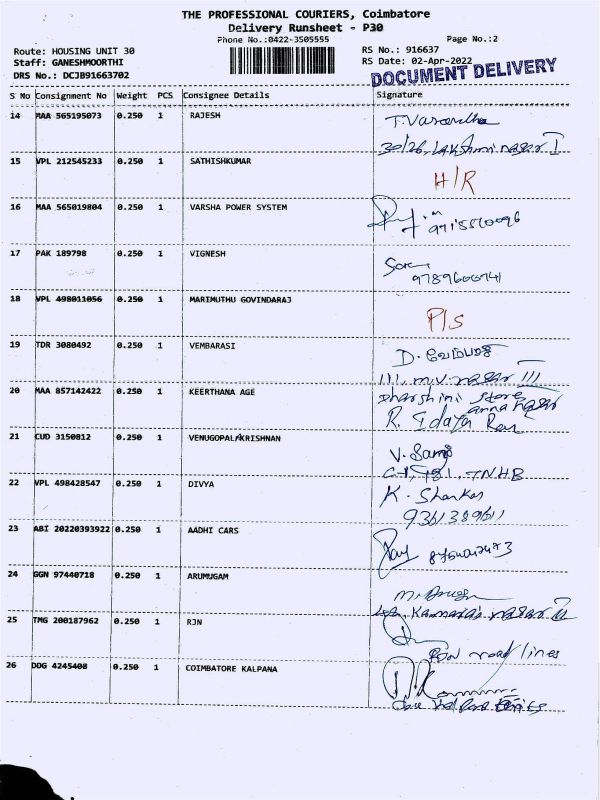 THE PROFESSIONAL COURIERS, Coimbatore
Delivery Runsheet - P30
Phone No.:0422-3505555
Page No.:2
Route: HOUSING UNIT 30
RS No.: 916637
Staff: GANESHMOORTHI
RS Date: 02-Apr-2022
DRS No.: DCJB91663702
DOCUMENT DELIVERY
S No Consignment No Weight PCS Consignee Details Signature
14 MAA 565195073 0.250 1 RAJESH
30/26, Lakshmi nagar I
15 VPL 212545233 0.250 1 SATHISHKUMAR
H/R
16 MAA 565019804 0.250 1 VARSHA POWER SYSTEM
17 PAK 189798 0.250 1 VIGNESH
18 VPL 498011056 0.250 1 MARIMUTHU GOVINDARAJ
P/S
19 TDR 3080492 0.250 1 VEMBARASI
D.
111, m.v. nagar III
20 MAA 857142422 0.250 1 KEERTHANA AGE
Dharshini Store
anna nagar
21 CUD 3150812 0.250 1 VENUGOPALAKRISHNAN
TNHB
22 VPL 498428547 0.250 1 DIVYA
K. Shankar
23 ABI 20220393922 0.250 1 AADHI CARS
24 GGN 97440718 0.250 1 ARUMUGAM
25 TMG 200187962 0.250 1 RJN
road lines
26 DDG 4245408 0.250 1 COIMBATORE KALPANA